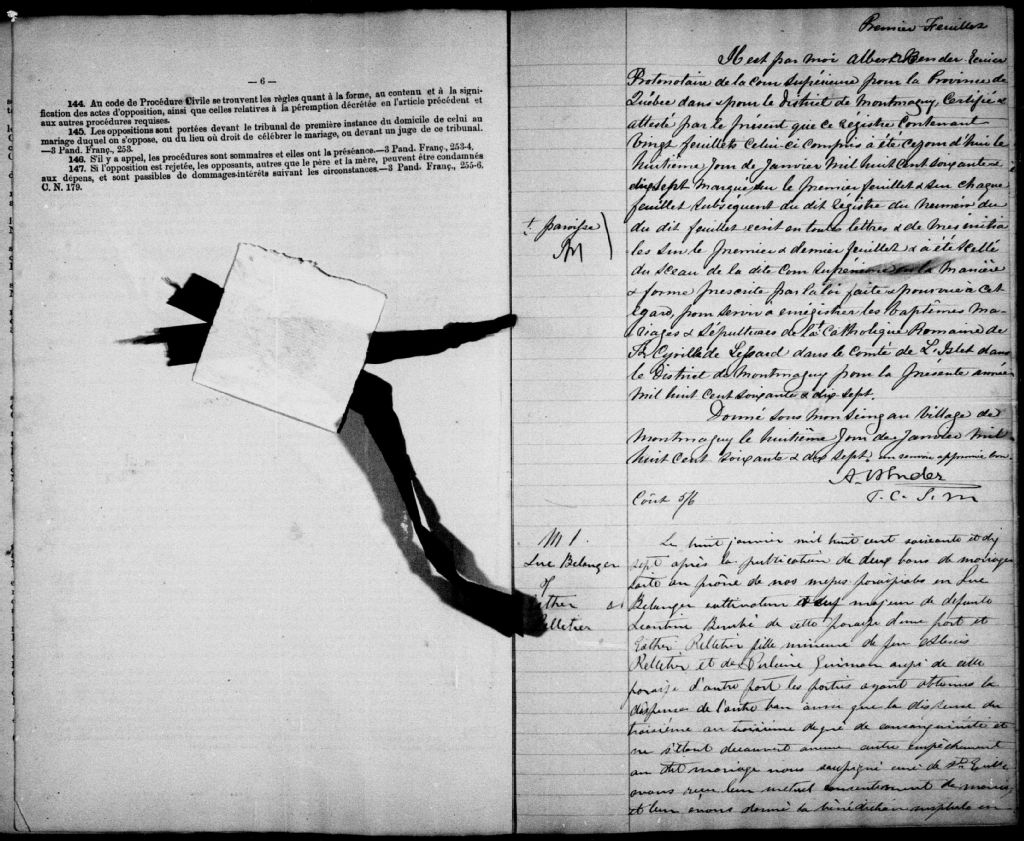 — 6 —
144. Au code de Procédure Civile se trouvent les règles quant à la forme, au contenu et à la signi-
fication des actes d'opposition, ainsi que celles relatives à la péremption décrétée en l'article précédent et
aux autres procédures requises.
145. Les oppositions sont portées devant le tribunal de première instance du domicile de celui au
mariage duquel on s'oppose, ou du lieu où droit de célébrer le mariage, ou devant un juge de ce tribunal.
—3 Pand. Franç., 253.
146. S'il y a appel, les procédures sont sommaires et elles ont la préséance.—3 Pand. Franç., 253-4.
147. Si l'opposition est rejetée, les opposants, autres que le père et la mère, peuvent être condamnés
aux dépens, et sont passibles de dommages-intérêts suivant les circonstances.—3 Pand. Franç., 255-6.
C. N. 179.
Premier Feuillet
Il est par moi Albert Bender Ecuier
Protonotaire de la cour Supérieure pour la Province de
Québec dans & pour le District de Montmagny Certifié &
attesté par le présent que ce régistre contenant
Vingt feuillets celui-ci compris a été ce jourd'hui le
huitième Jour de Janvier Mil huit cent soixante &
dix sept Marqué sur le premier feuillet & sur chaque
feuillet subséquent du dit régistre du numéro du
du dit feuillet ecrit en toutes lettres & de mes initia
les sur le premier & dernier feuillet & a été scellé
du sceau de la dite cour Supérieure en la Manière
& forme prescrite par la loi faite & pourvue à cet
égard, pour servir à enregistrer les baptêmes Ma-
riages & Sépultures de la Catholique Romaine de
St Cyrille de Lessard dans le Comté de L'Islet dans
le District de Montmagny pour la présente année
Mil huit cent soixante & dix sept.
Donné sous mon seing au Village de
Montmagny le huitième Jour de Janvier Mil
huit cent soixante & dix sept.
A. Bender
P. C. S. M
Coût 5/6
paroisse
M 1.
Luc Belanger
&
Esther
Pelletier
Le huit janvier mil huit cent soixante et dix
sept après la publication de deux bans de mariage
faite au prône de nos messes paroissiales en Luc
Belanger cultivateur majeur de defunte
Léontine de cette paroisse d'une part et
Esther Pelletier fille mineure de feu Alexis
Pelletier et de aussi de cette
paroisse d'autre part les parties ayant obtenu la
dispense de l'autre ban ainsi que la dispense du
troisième au troisième degré de consanguinité et
ne s'étant découvert aucun autre empêchement
au dit mariage nous soussigné curé de
avons reçu leur mutuel consentement de mariage
et leur avons donné la bénédiction nuptiale en